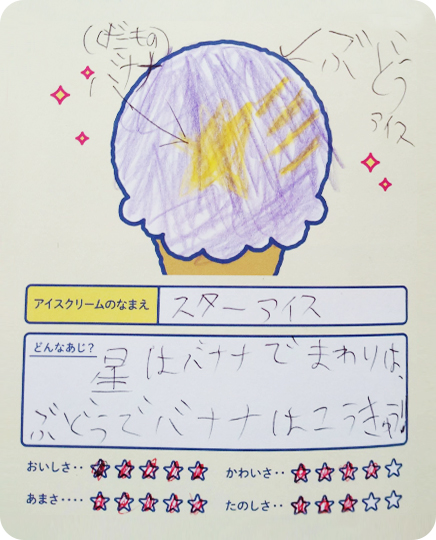 (くだもの)
バナナ
ぶどう
アイス
アイスクリームのなまえ
スターアイス
どんなあじ?
星はバナナでまわりは、
ぶどうでバナナはこうきゅう!
おいしさ‥
かわいさ‥
あまさ‥‥
たのしさ‥